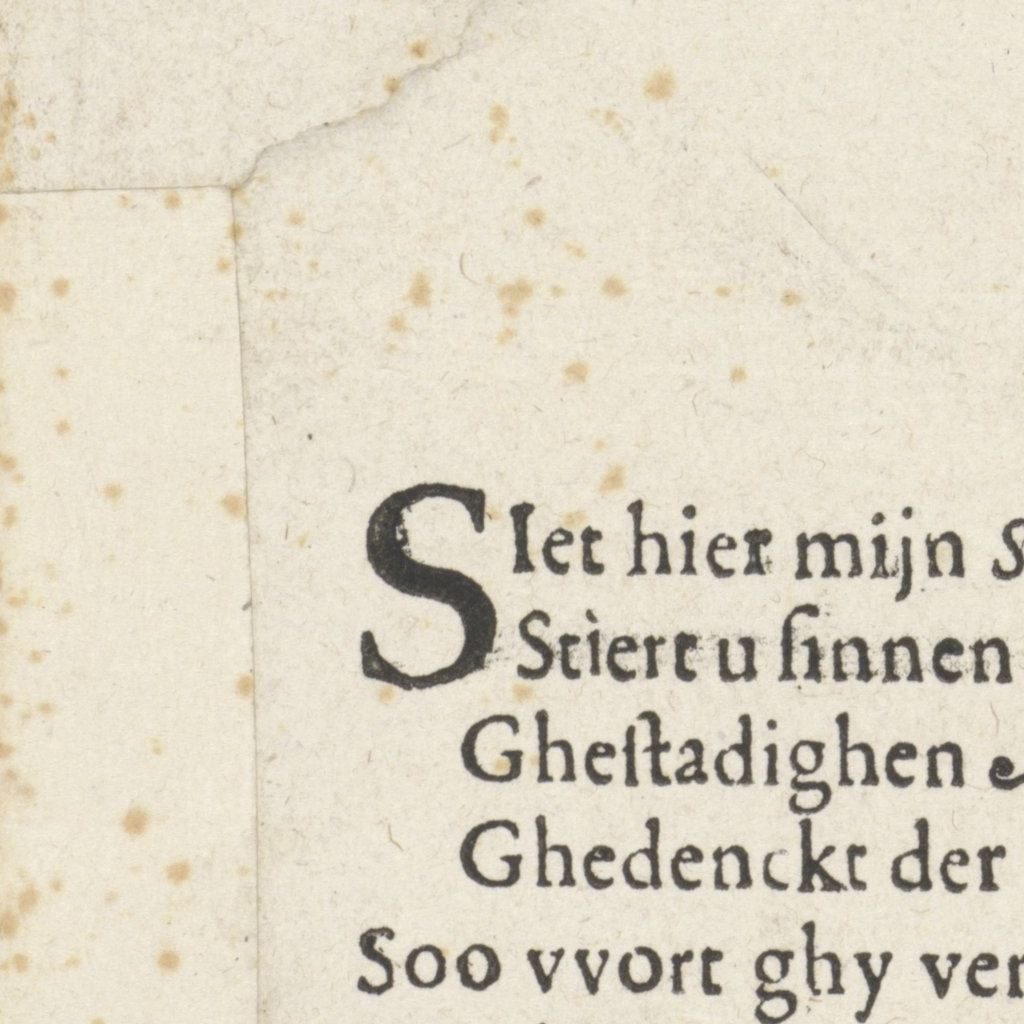 SIet hier mijn
Stiert u ſinnen
Gheſtadighen
Ghedenckt der
Soo vvort ghy ver